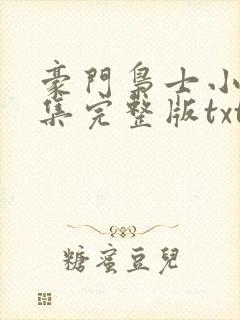 豪門梟士小
集完整版txt
糖蜜豆兒